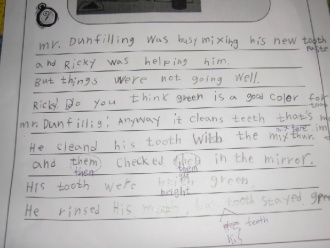 9
mr. Dunfilling was busy mixing his new tooth paste
and Ricky was helping him.
But things were not going well.
Ricky: Do you think green is a good color for
mr. Dunfillig: Anyway it cleans teeth that's
He cleand his tooth with the mixture
and then checked them in the mirror.
His tooth were bright green
He rinsed his tooth stayed green
teeth
his